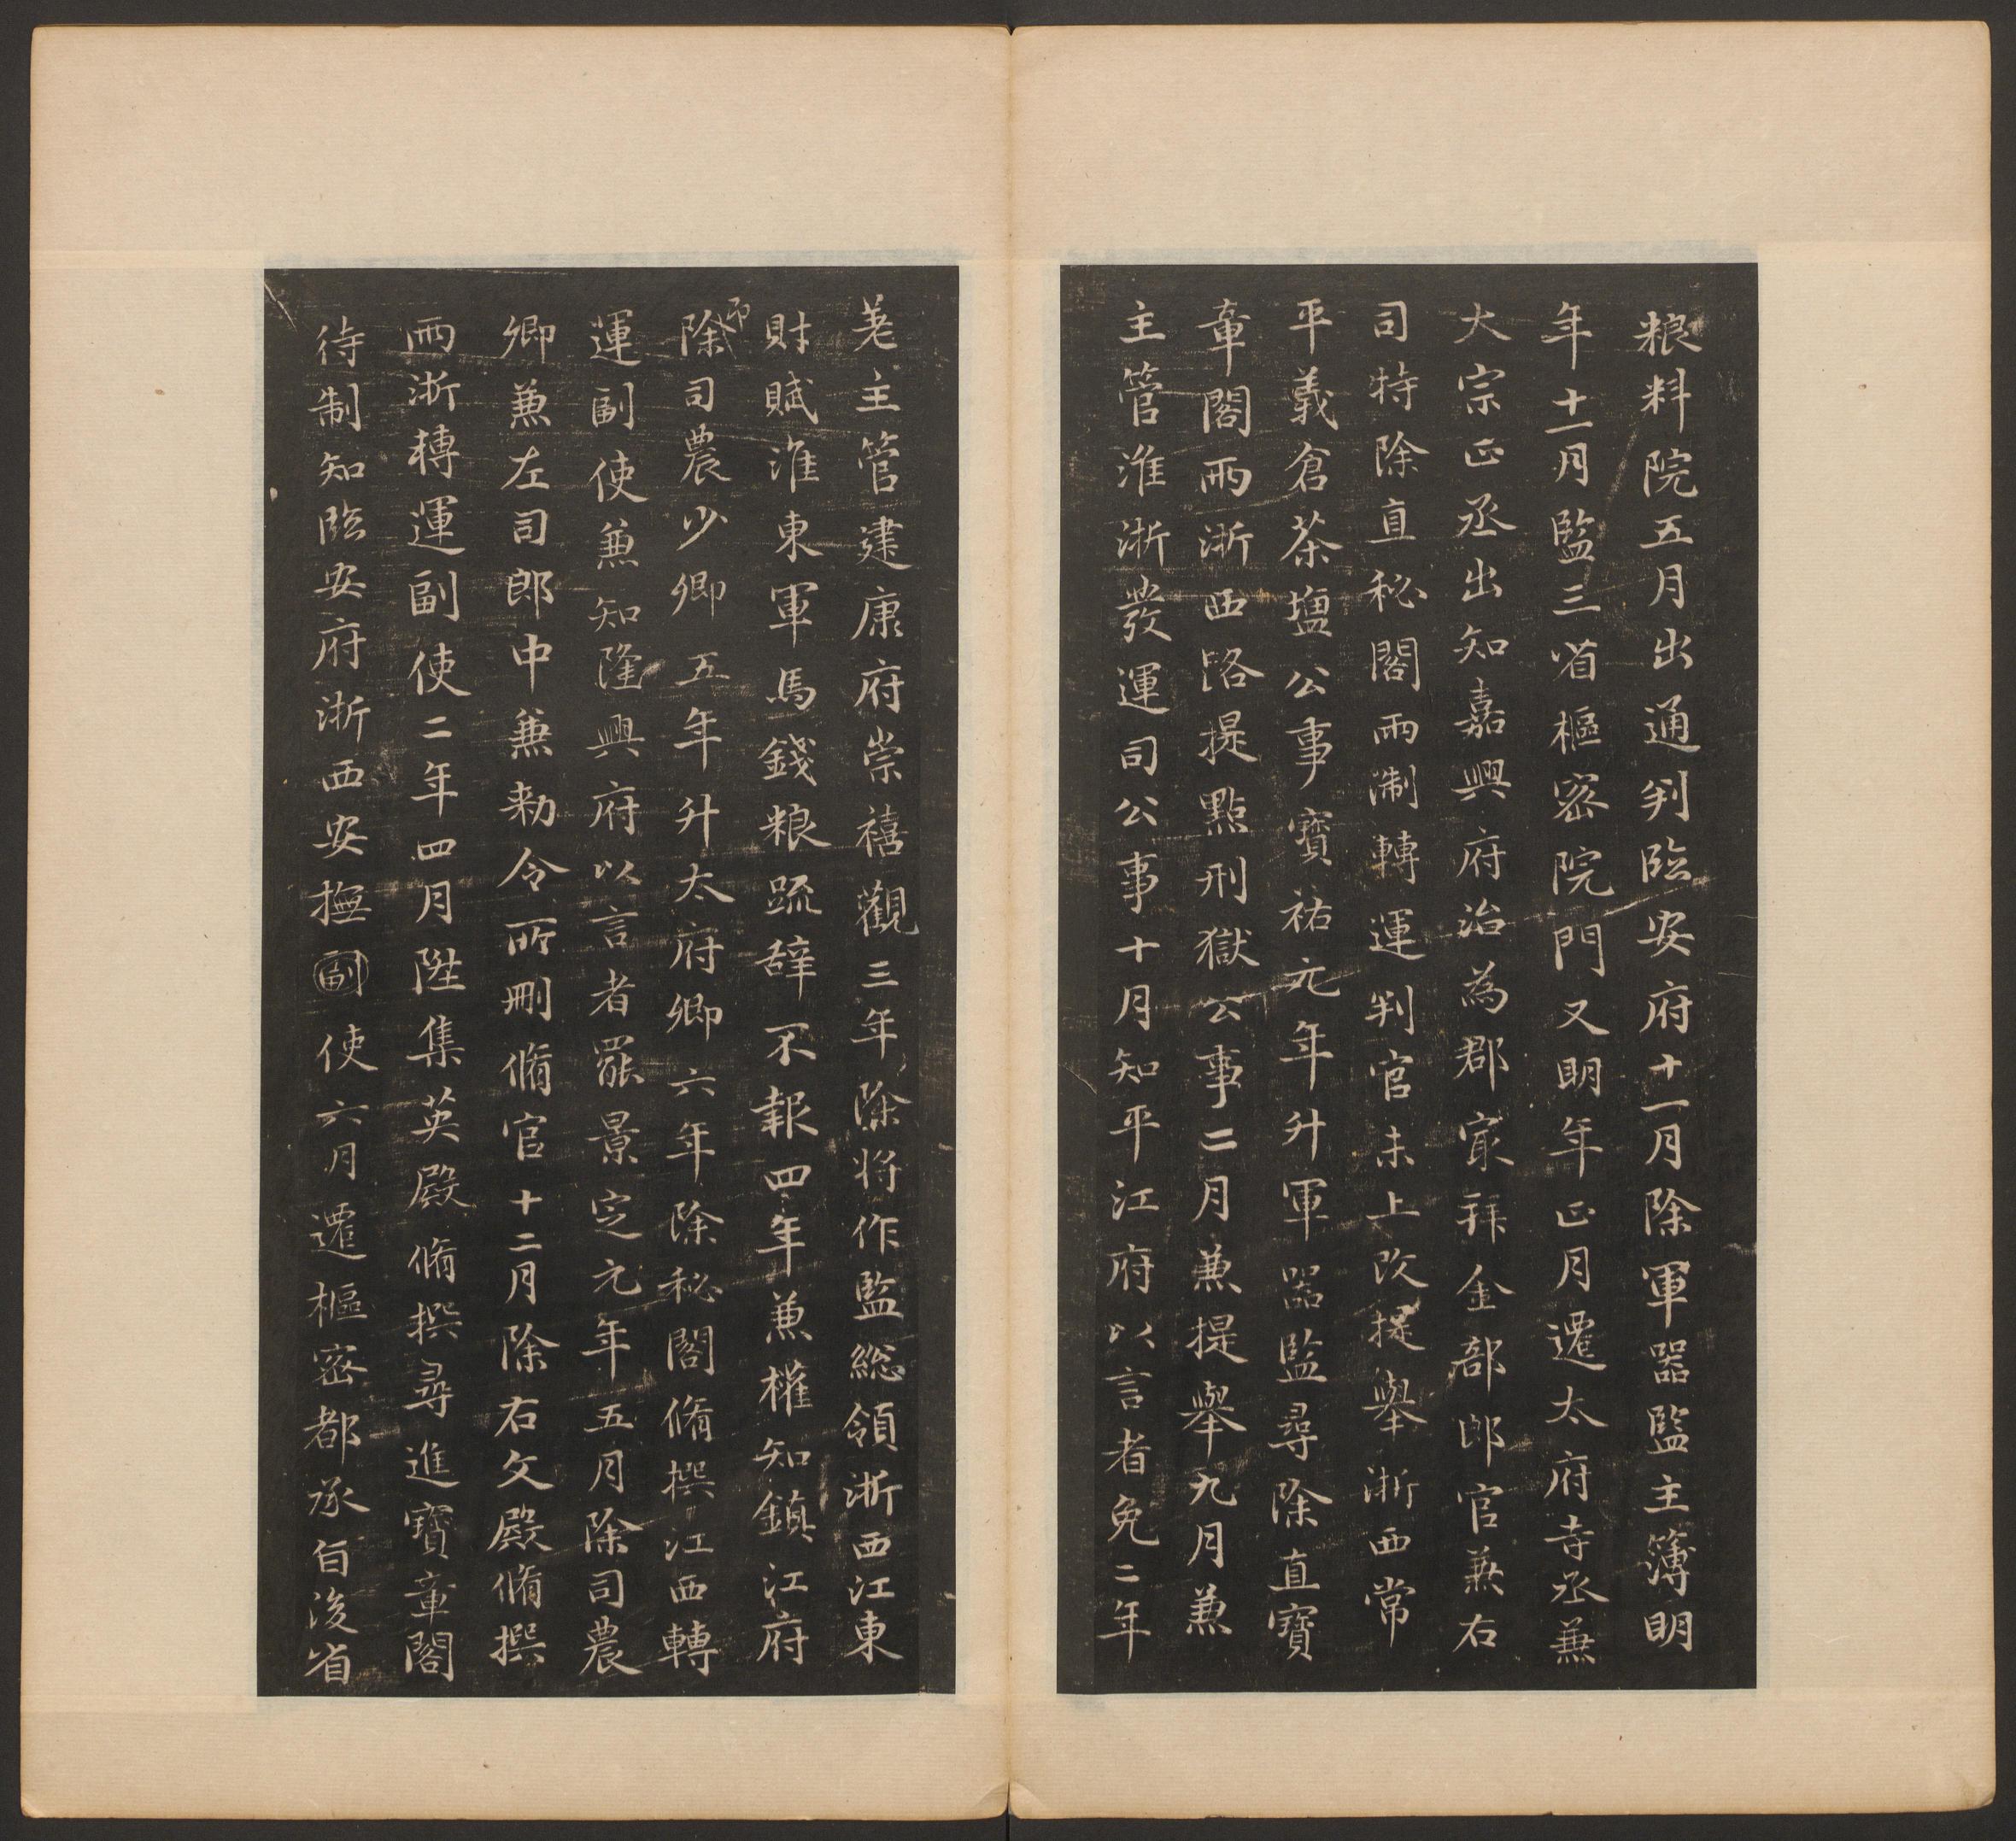 粮料院五月出通判臨安府十一月除軍器監主簿明
年十一月監三省樞密院門又明年正月遷太府寺丞兼
大宗正丞出知嘉興府治為郡冣拜金部郎官兼右
司特除直秘閣兩淛轉運判官未上改提舉浙西常
平義倉茶塩公事寶祐元年升軍器監尋除直寶
章閣兩浙西路提點刑獄公事二月兼提舉九月兼
主管淮浙發運司公事十月知平江府以言者免二年
差主管建康府崇禧觀三年除将作監総領浙西江東
財賦淮東軍馬錢粮䟽辞不報四年兼權知鎮江府
除司農少卿五年升太府卿六年除秘閣脩撰江西轉
運副使兼知隆興府以言者罷景定元年五月除司農
卿兼左司郎中兼勑令所刪脩官十二月除右文殿脩撰
兩浙轉運副使二年四月陞集英殿脩撰尋進寶章閣
待制知臨安府浙西安撫副使六月遷樞密都承旨後省